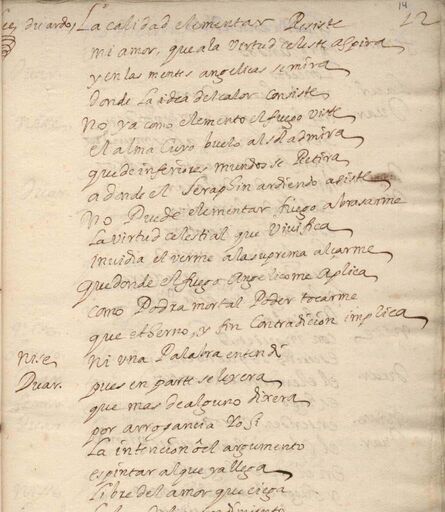 14
lee, duardo, La calidad elementar Resiste
mi amor, que ala virtud celeste aspira
y en las mentes angelicas se mira
donde La idea del calor consiste
No ya como elemento el fuego viste
el alma cuyo buelo al sol admira
que de inferiores mundos se Retira
adonde el Seraphin ardiendo asiste
No Puede elementar fuego abrasarme
La virtud celestial que vivifica
invidia el verme ala suprema alçarme
que donde el fuego Angelico me aplica
como Podra mortal Poder tocarme
que etherno, y fin Contradicion implica
nise Ni una Palabra entendi
Duar. pues en parte se leyera
que mas de alguno dixera
por arrogancia yo si
La intencion o el argumento
es pintar al que ya llega
libre del amor que ciega